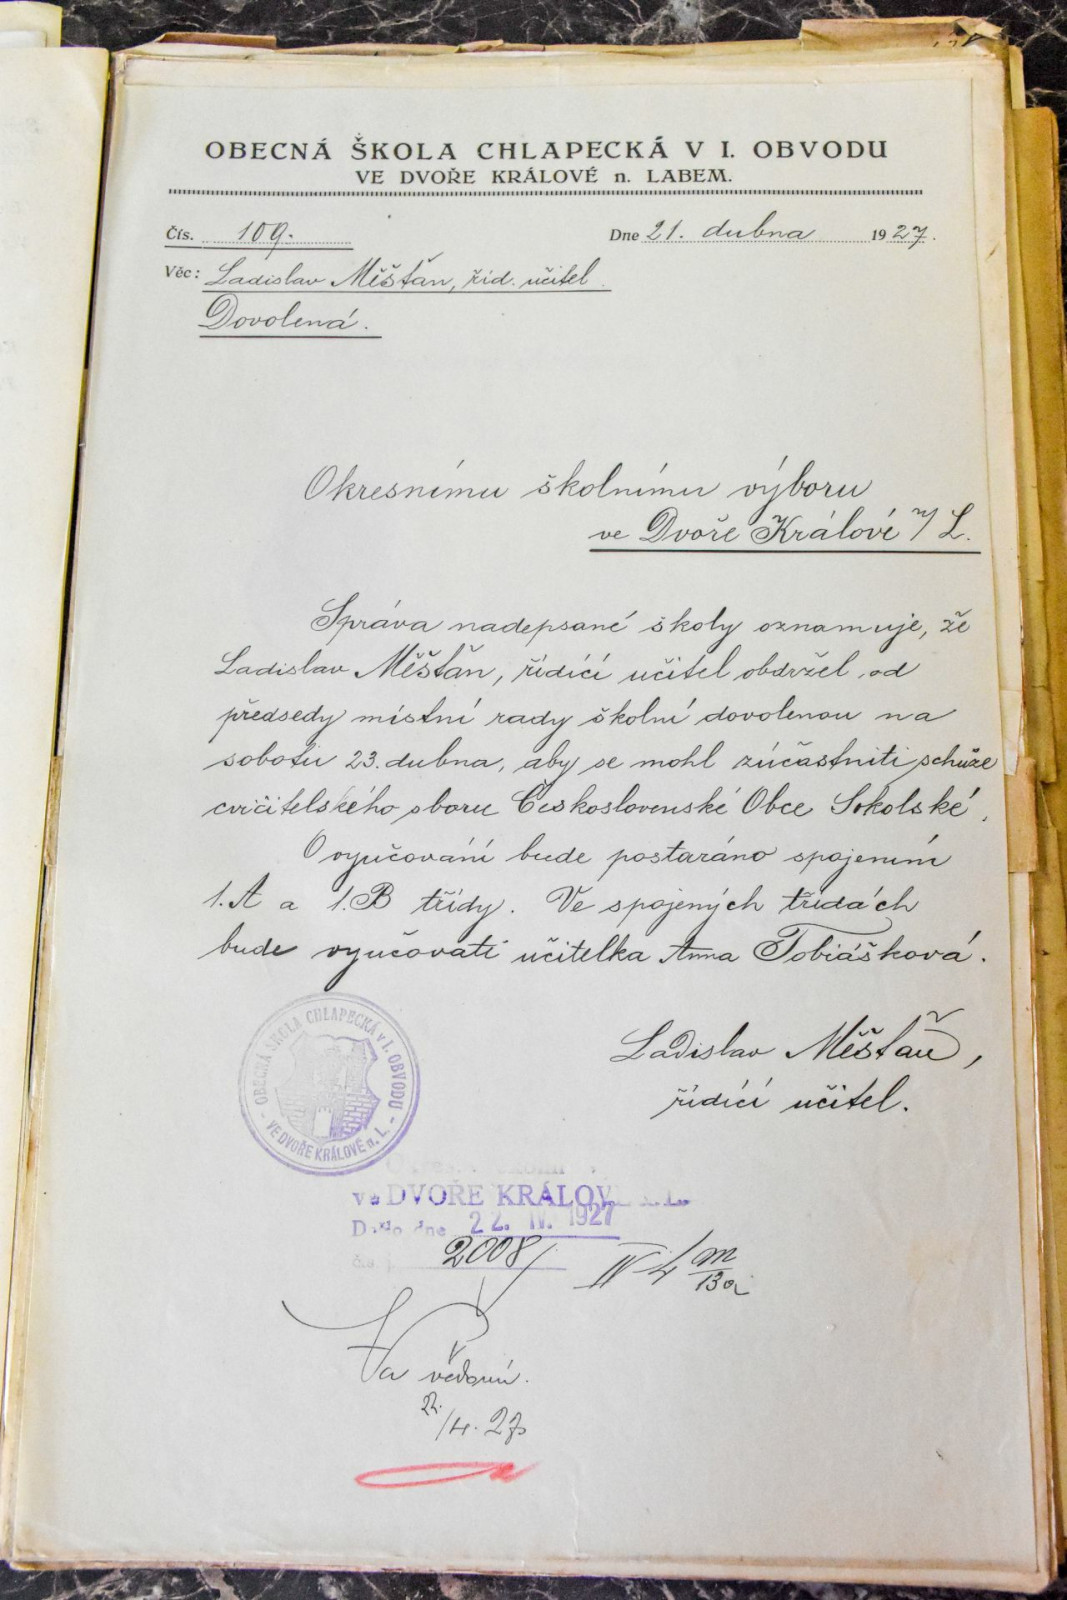 OBECNÁ ŠKOLA CHLAPECKÁ V I. OBVODU
VE DVOŘE KRÁLOVÉ n. LABEM.
Čís. 109. Dne 21. dubna 1927.
Věc: Ladislav Měšťan, říd. učitel
Dovolená.
Okresnímu školnímu výboru
ve Dvoře Králové n/L.
Správa nadepsané školy oznamuje, že
Ladislav Měšťan, řídící učitel obdržel od
předsedy místní rady školní dovolenou na
sobotu 23. dubna, aby se mohl zúčastniti schůze
cvičitelského sboru Československé Obce Sokolské.
O vyučování bude postaráno spojením
1.A a 1.B třídy. Ve spojených třídách
bude vyučovati učitelka Anna Tobiášková.
Ladislav Měšťan,
řídící učitel.
OBECNÁ ŠKOLA CHLAPECKÁ V I. OBVODU
VE DVOŘE KRÁLOVÉ n. L.
ve DVOŘE KRÁLOVÉ n. L.
Došlo dne 22. IV. 1927
2008/ IV 4
Na vědomí.
22./4. 27